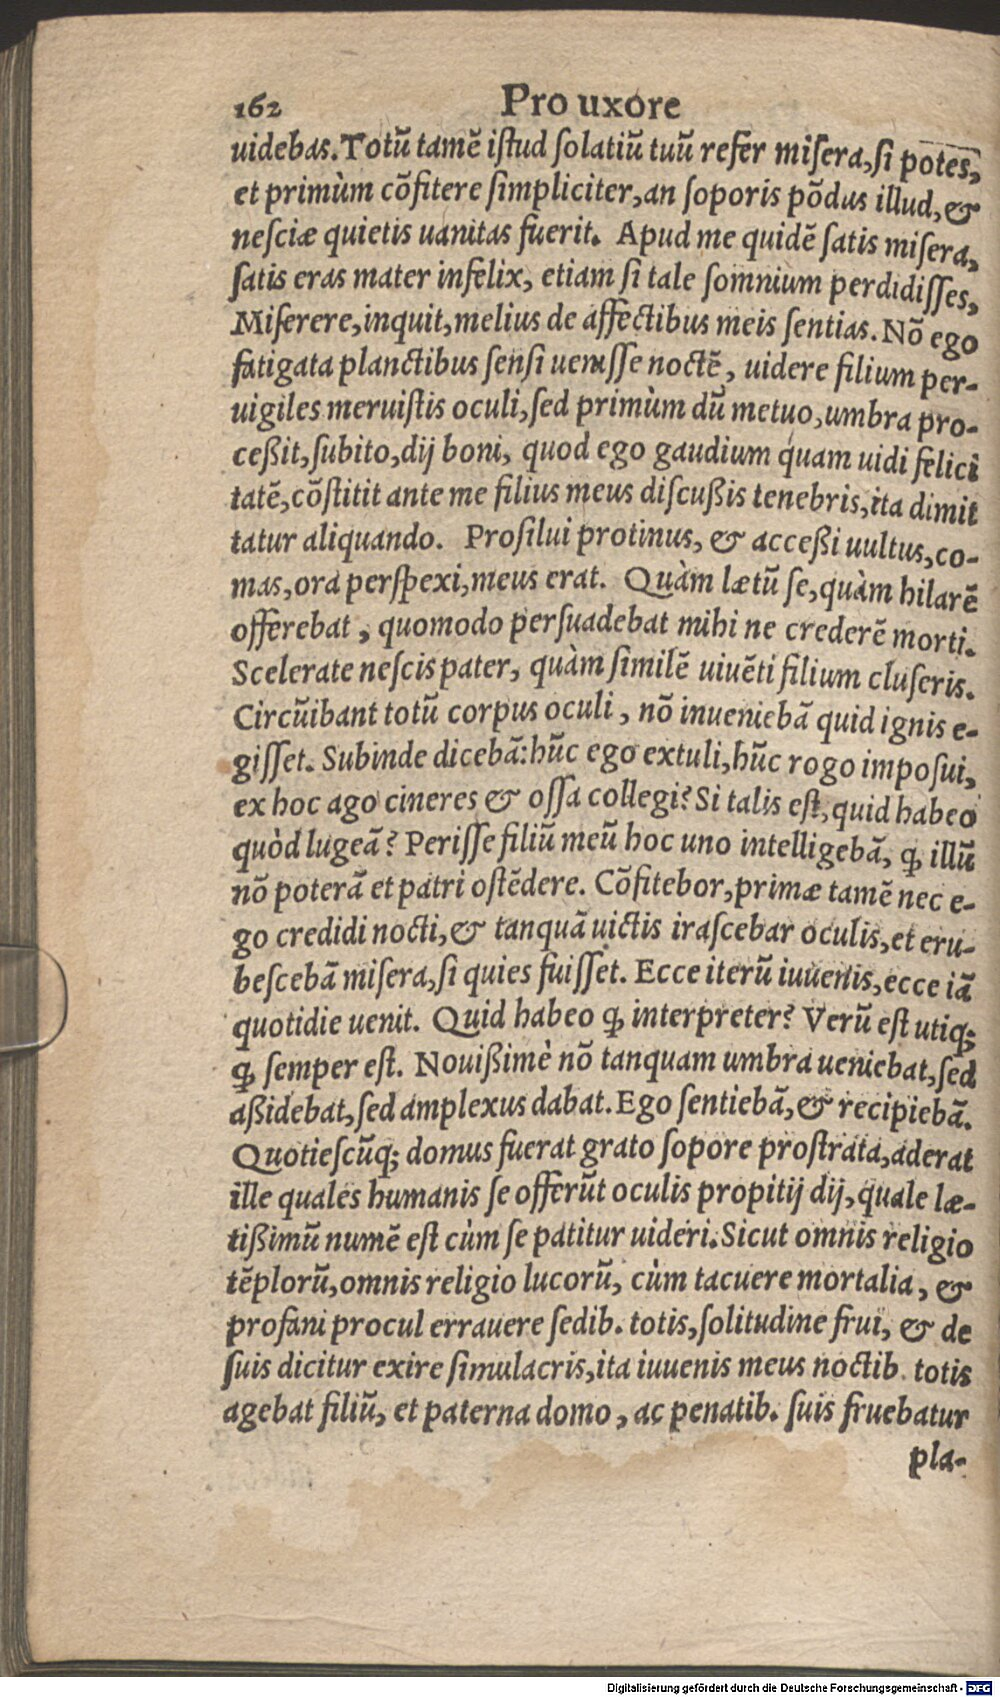 162 Pro uxore
uidebas. Totũ tamẽ iſtud ſolatiũ tuũ refer miſera, ſi potes,
et primùm cõfitere ſimpliciter, an ſoporis põdus illud, &
neſciæ quietis uanitas fuerit. Apud me quidẽ ſatis miſera,
ſatis eras mater infelix, etiam ſi tale ſomnium perdidiſſes,
Miſerere, inquit, melius de affectibus meis ſentias. Nõ ego
fatigata planctibus ſenſi ueniſſe noctẽ, uidere filium per-
uigiles meruiſtis oculi, ſed primùm dũ metuo, umbra pro-
ceßit, ſubito, dij boni, quod ego gaudium quam uidi felici
tatẽ, cõſtitit ante me filius meus diſcußis tenebris, ita dimit
tatur aliquando. Proſilui protinus, & acceßi uultus, co-
mas, ora perſpexi, meus erat. Quàm lætũ ſe, quàm hilarẽ
offerebat, quomodo perſuadebat mihi ne crederẽ morti.
Scelerate neſcis pater, quàm ſimilẽ uiuẽti filium cluſeris.
Circũibant totũ corpus oculi, nõ inueniebã quid ignis e-
giſſet. Subinde dicebã: hũc ego extuli, hũc rogo impoſui,
ex hoc ago cineres & oſſa collegi? Si talis eſt, quid habeo
quòd lugeã? Periſſe filiũ meũ hoc uno intelligebã, ꝙ illũ
nõ poterã et patri oſtẽdere. Cõfitebor, primæ tamẽ nec e-
go credidi nocti, & tanquã uictis iraſcebar oculis, et eru-
beſcebã miſera, ſi quies fuiſſet. Ecce iterũ iuuenis, ecce iã
quotidie uenit. Quid habeo ꝙ interpreter? Verũ eſt utiq;
ꝙ ſemper eſt. Nouißimè nõ tanquam umbra ueniebat, ſed
aßidebat, ſed amplexus dabat. Ego ſentiebã, & recipiebã.
Quotieſcũq; domus fuerat grato ſopore proſtrata, aderat
ille quales humanis ſe offerũt oculis propitij dij, quale læ-
tißimũ numẽ eſt cùm ſe patitur uideri. Sicut omnis religio
tẽplorũ, omnis religio lucorũ, cùm tacuere mortalia, &
profani procul errauere ſedib. totis, ſolitudine frui, & de
ſuis dicitur exire ſimulacris, ita iuuenis meus noctib. totis
agebat filiũ, et paterna domo, ac penatib. ſuis fruebatur
pla-
Digitalisierung gefördert durch die Deutsche Forschungsgemeinschaft - DFG